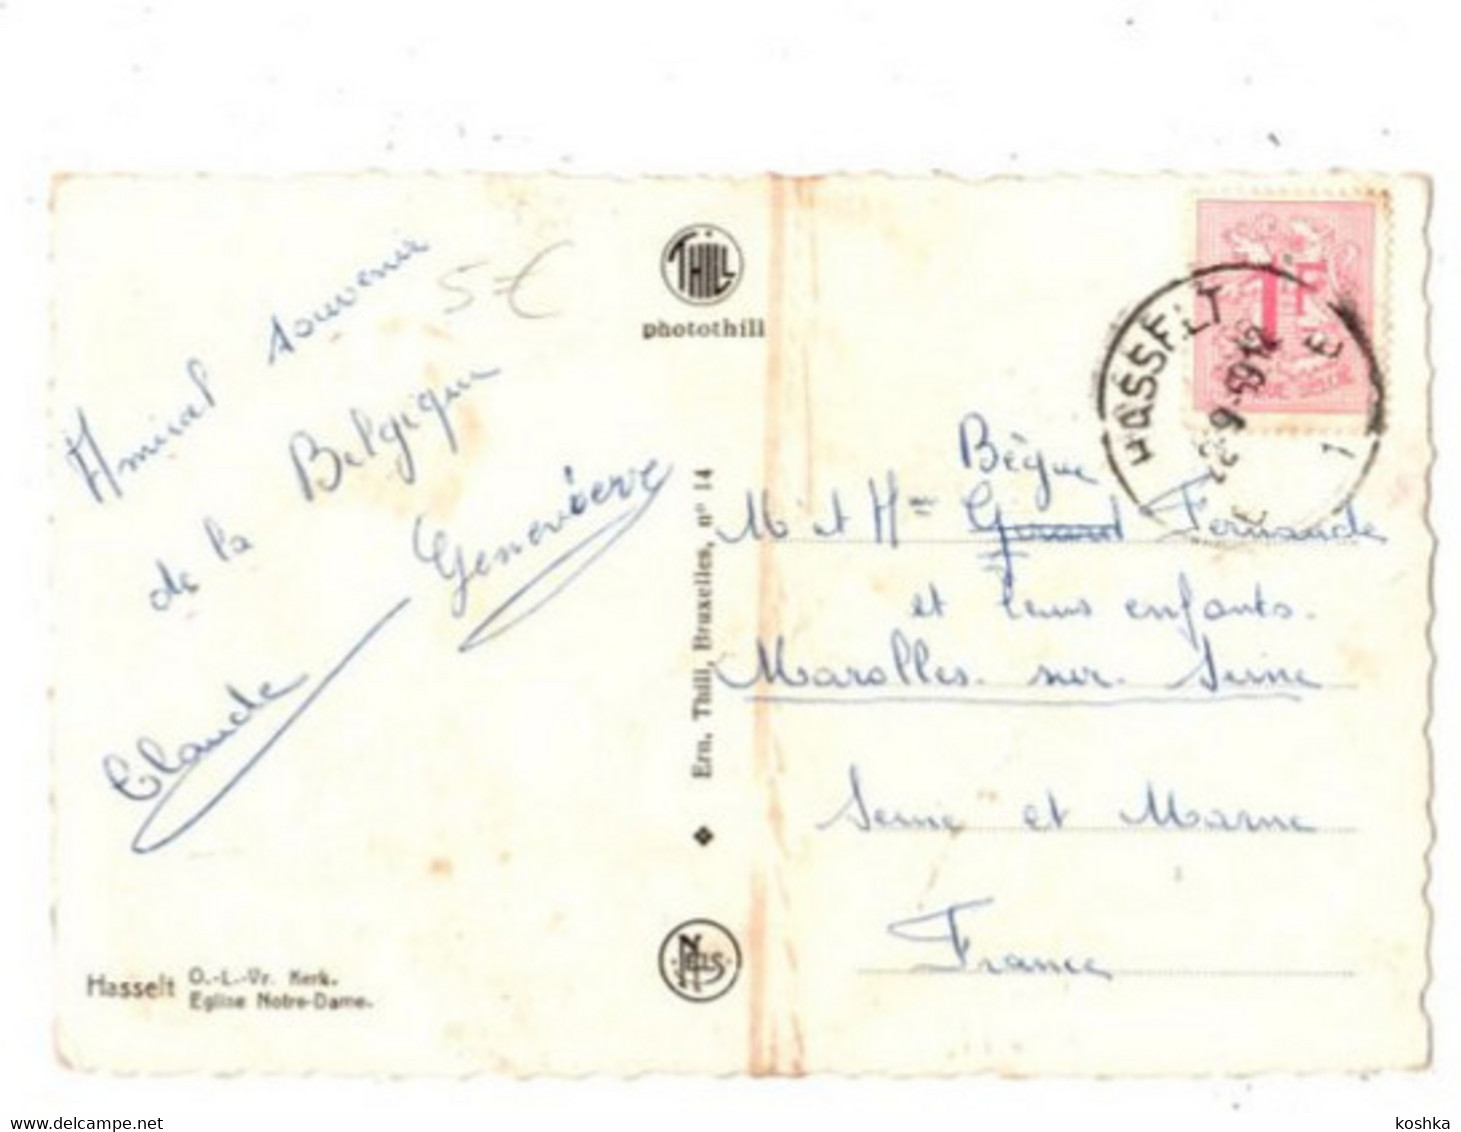 Amical souvenir
de la Belgique
Geneviève
Claude
5€
Hasselt O.-L.-Vr. Kerk.
Eglise Notre-Dame.
THILL
photothill
Ern. Thill, Bruxelles, n° 14
NELS
HASSELT
1F
Bègue
M et Mme Girard Fernande
et leurs enfants.
Marolles. sur. Seine
Seine et Marne
France
delcampe.net
koshka